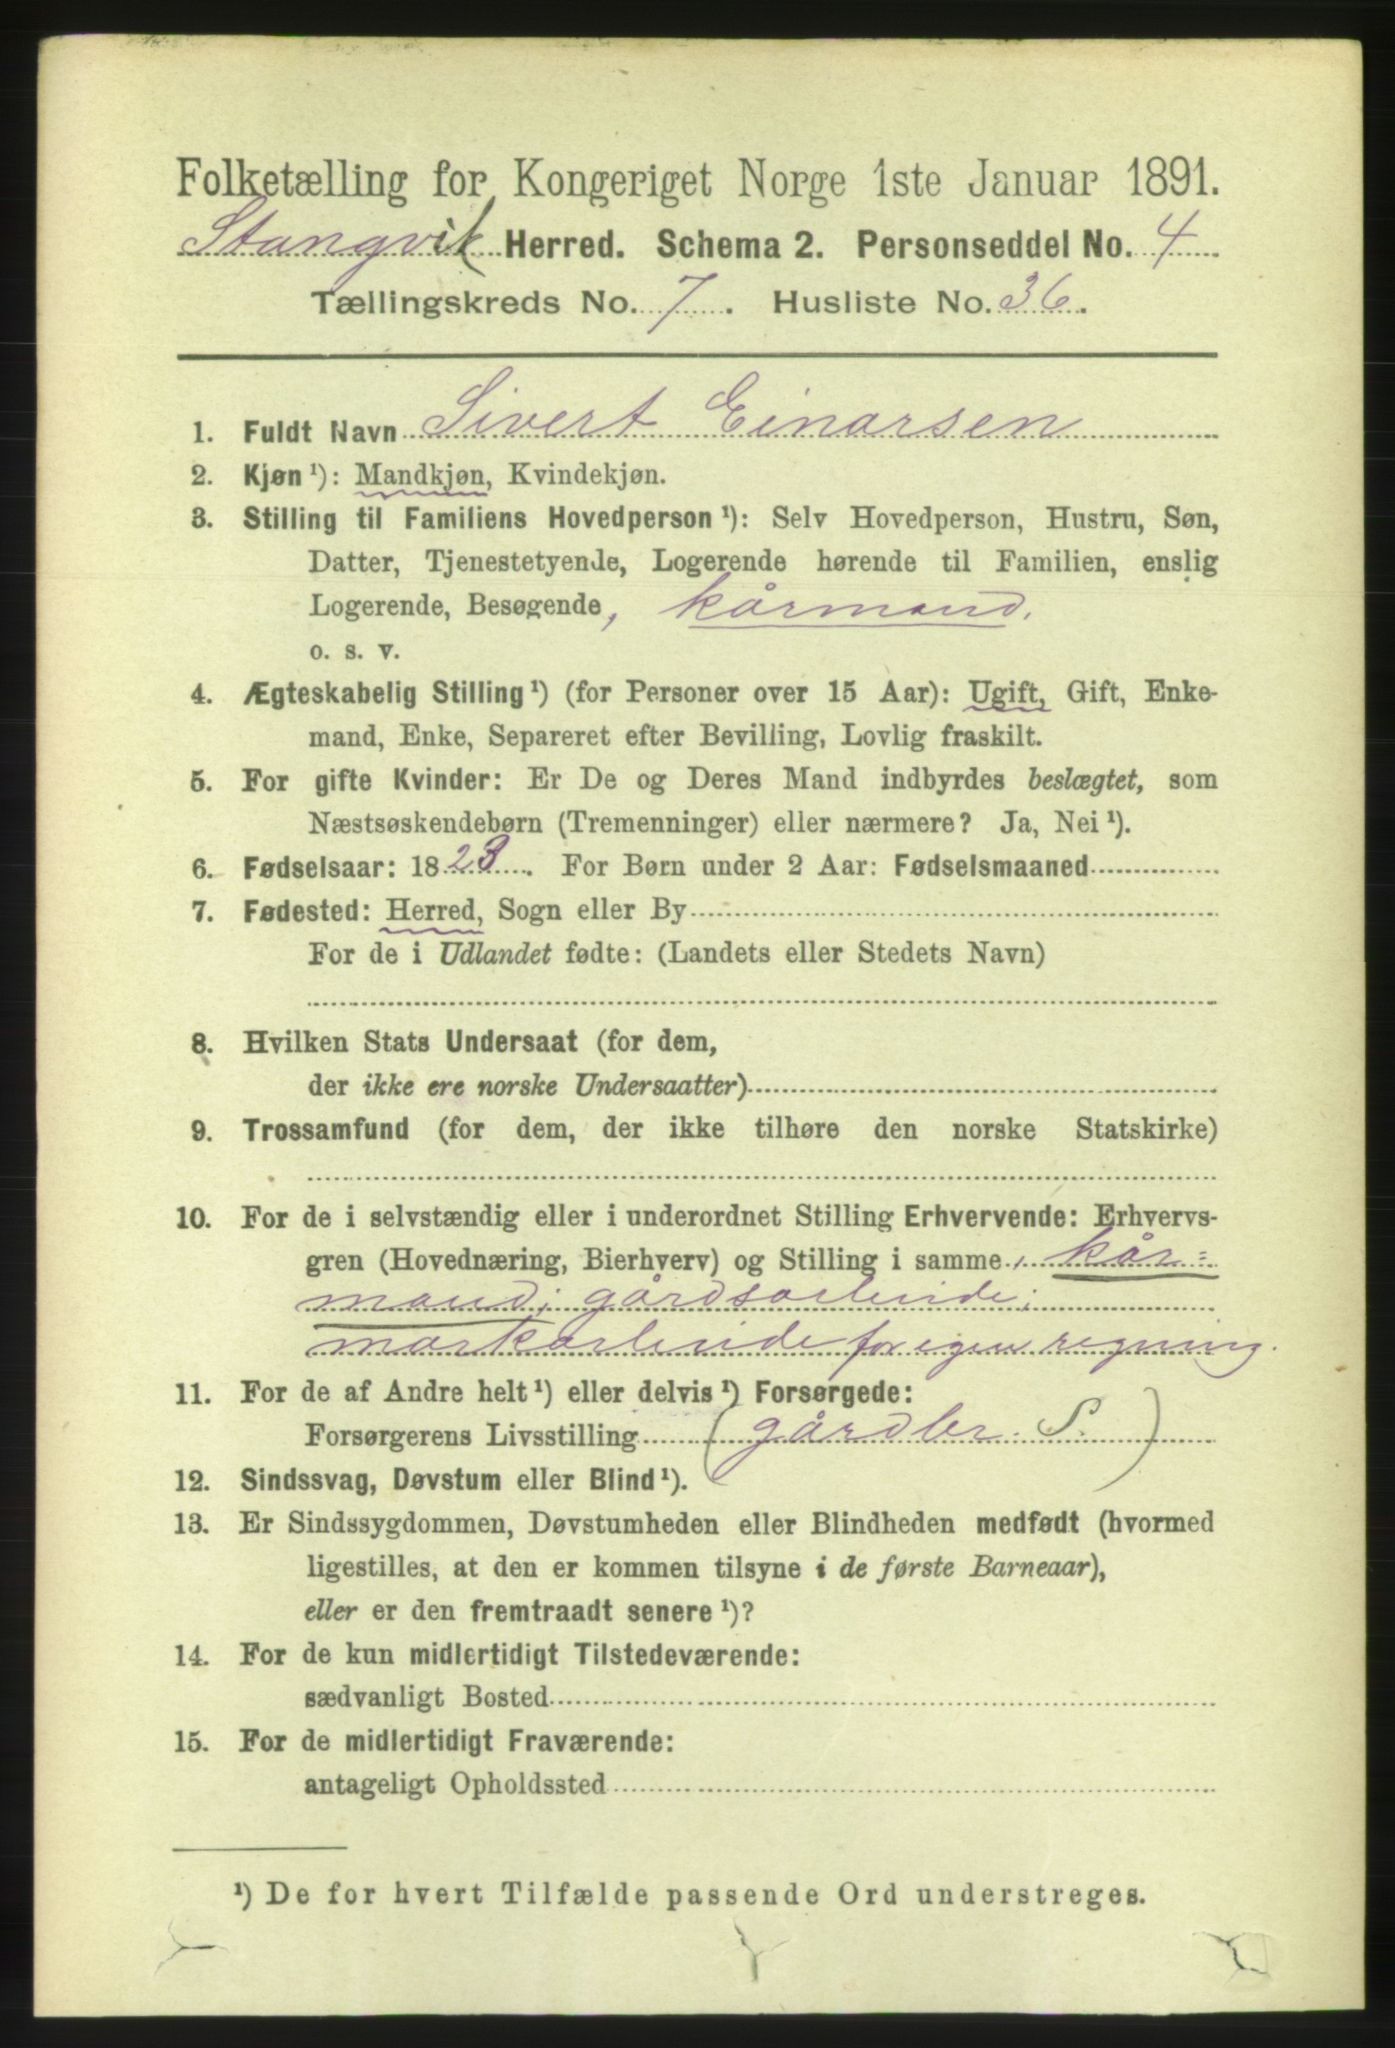 Folketælling for Kongeriget Norge 1ste Januar 1891.
Stangvik Herred. Schema 2. Personseddel No. 4
Tællingskreds No. 7. Husliste No. 36.
1. Fuldt Navn Sivert Einarsen
2. Kjøn ¹): Mandkjøn, Kvindekjøn.
3. Stilling til Familiens Hovedperson ¹): Selv Hovedperson, Hustru, Søn,
Datter, Tjenestetyende, Logerende hørende til Familien, enslig
Logerende, Besøgende, kårmand.
o. s. v.
4. Ægteskabelig Stilling ¹) (for Personer over 15 Aar): Ugift, Gift, Enke-
mand, Enke, Separeret efter Bevilling, Lovlig fraskilt.
5. For gifte Kvinder: Er De og Deres Mand indbyrdes beslægtet, som
Næstsøskendebørn (Tremenninger) eller nærmere? Ja, Nei ¹).
6. Fødselsaar: 1823. For Børn under 2 Aar: Fødselsmaaned
7. Fødested: Herred, Sogn eller By
For de i Udlandet fødte: (Landets eller Stedets Navn)
8. Hvilken Stats Undersaat (for dem,
der ikke ere norske Undersaatter)
9. Trossamfund (for dem, der ikke tilhøre den norske Statskirke)
10. For de i selvstændig eller i underordnet Stilling Erhvervende: Erhvervs-
gren (Hovednæring, Bierhverv) og Stilling i samme kår=
mand; gårdsarbeide;
markarbeide for egen regning.
11. For de af Andre helt ¹) eller delvis ¹) Forsørgede:
Forsørgerens Livsstilling (gårdbr. S.)
12. Sindssvag, Døvstum eller Blind ¹).
13. Er Sindssygdommen, Døvstumheden eller Blindheden medfødt (hvormed
ligestilles, at den er kommen tilsyne i de første Barneaar),
eller er den fremtraadt senere ¹)?
14. For de kun midlertidigt Tilstedeværende:
sædvanligt Bosted
15. For de midlertidigt Fraværende:
antageligt Opholdssted
¹) De for hvert Tilfælde passende Ord understreges.